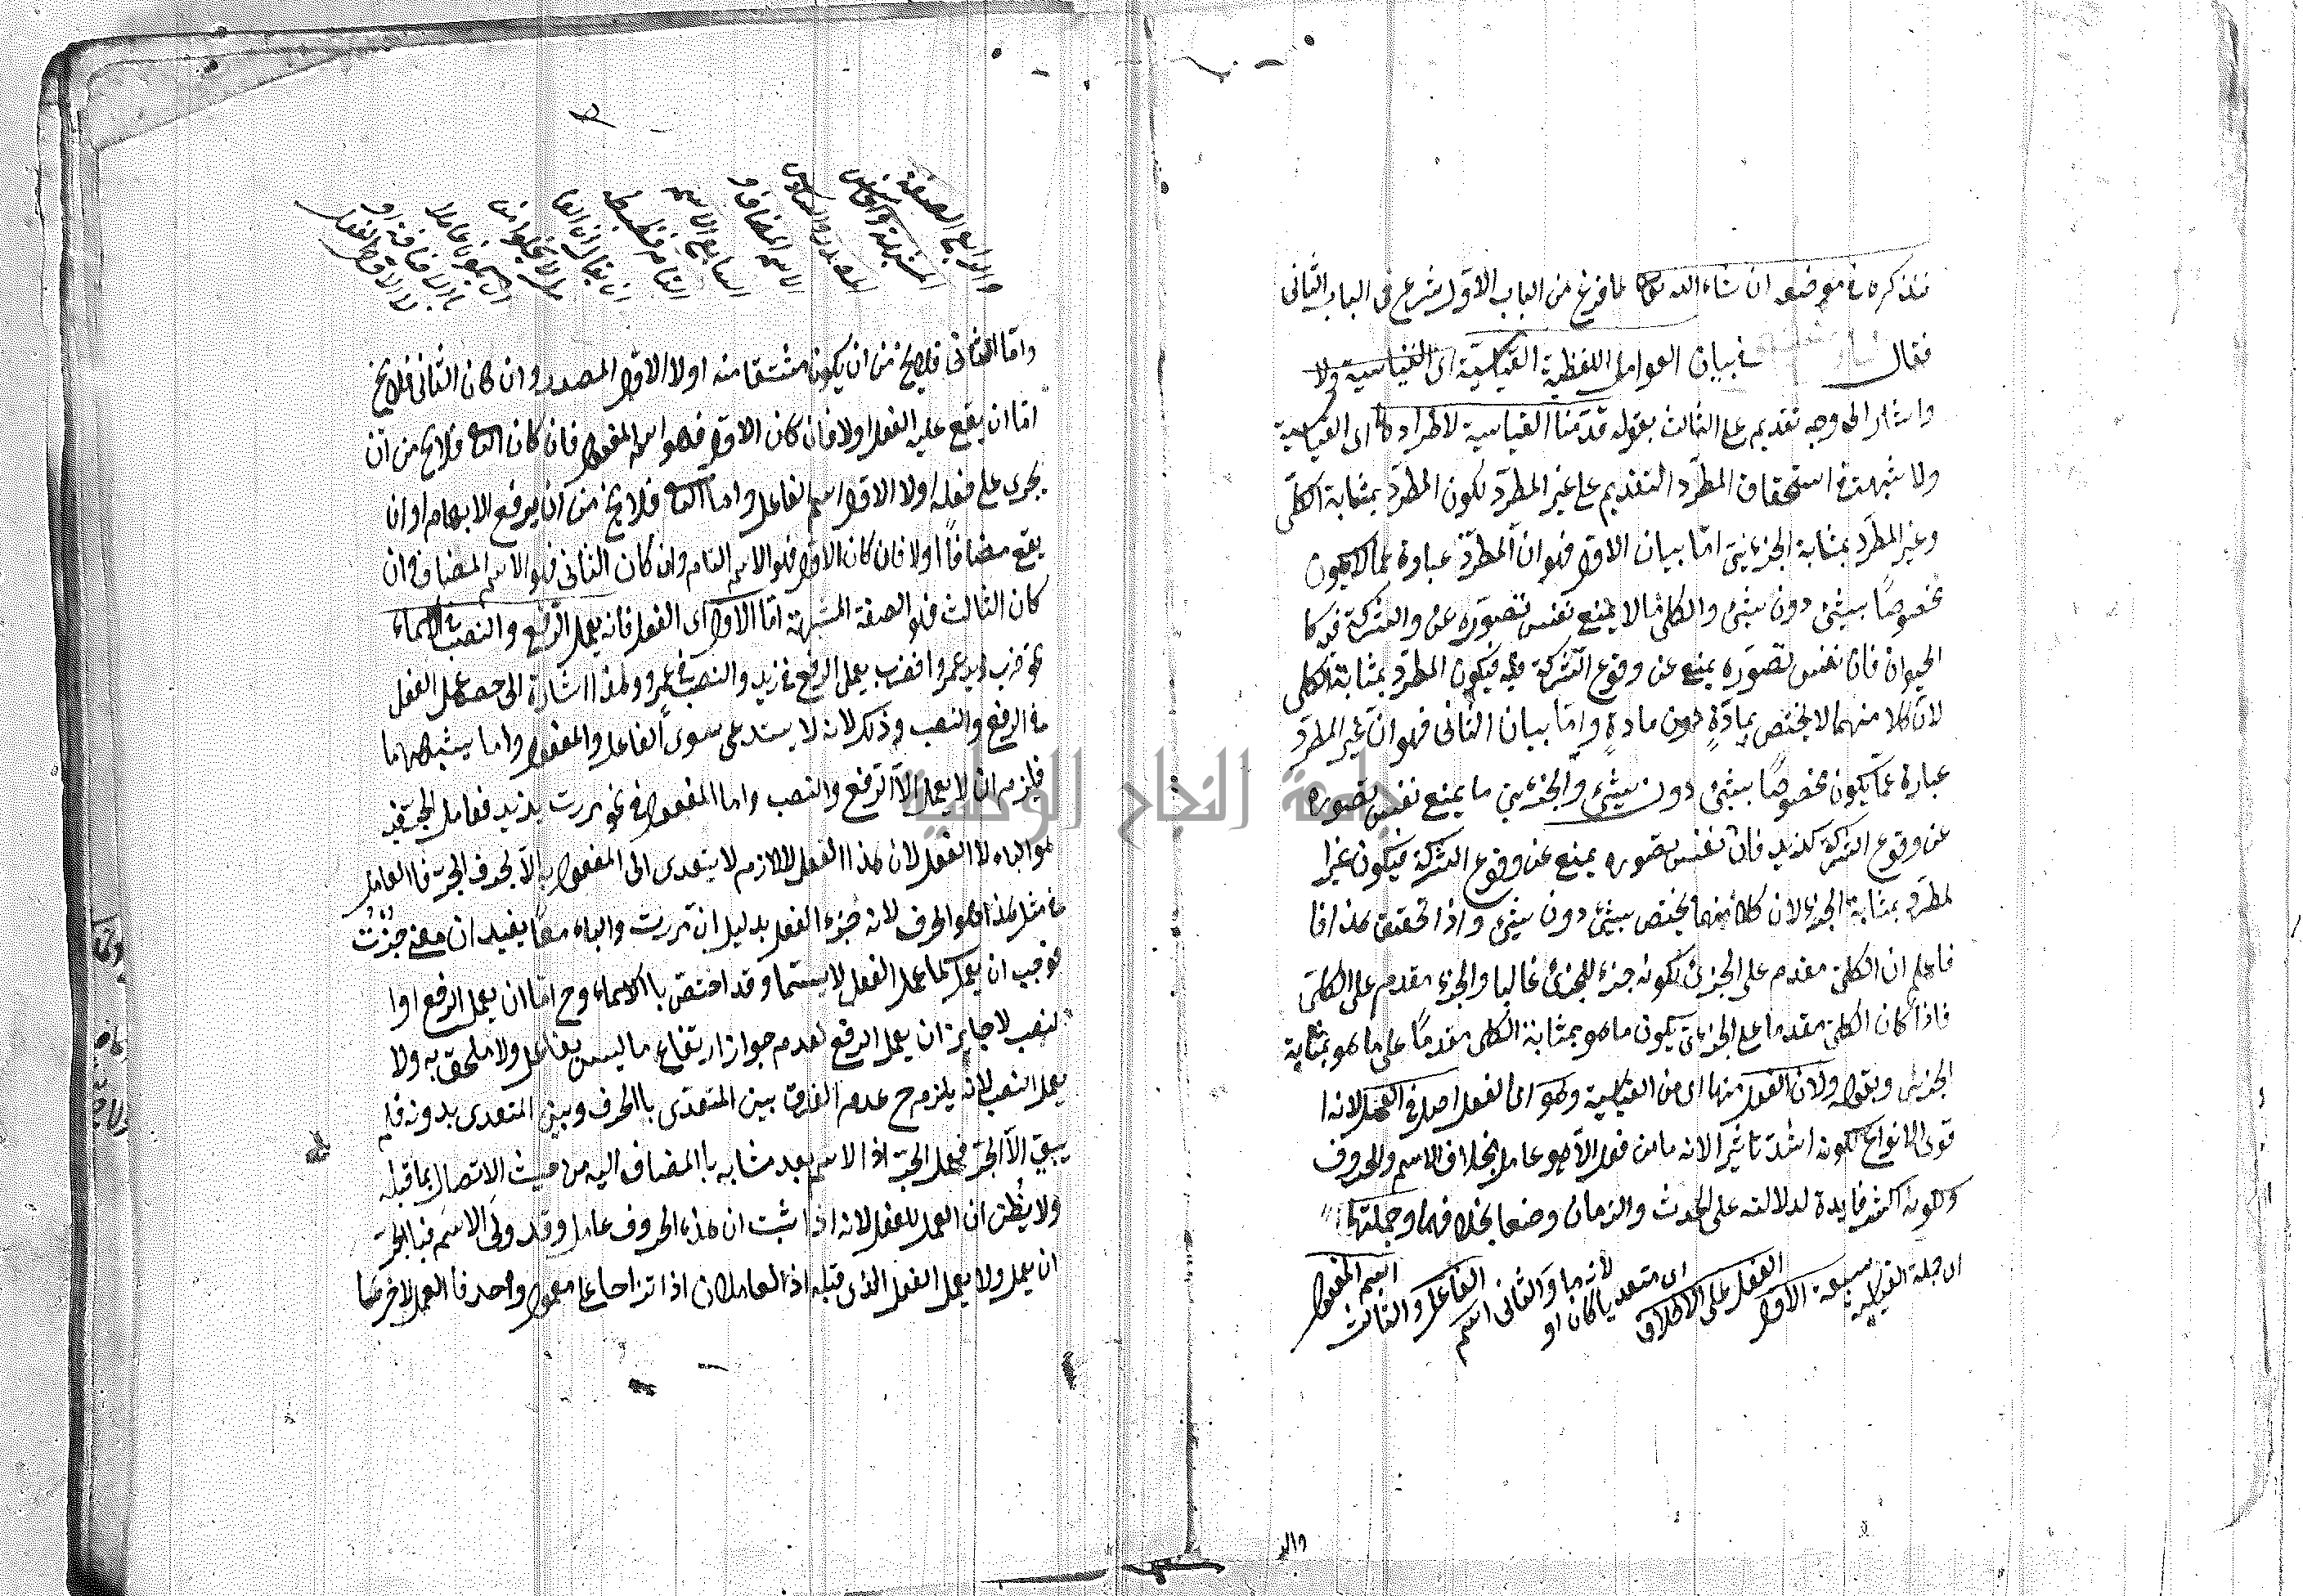 فنذكره في موضعه ان شاء الله تعالى لما فرغ من الباب الاول شرع في الباب الثاني
فقال في بيان العوامل اللفظية القياسية اى القياسية ولا
واشار الى وجه تقديم على الثالث بقوله قدمنا القياسية لاطرادها اى القياسية
ولا شبهة في استحقاق المطرّد التقديم على غير المطرّد لكون المطرّد بمثابة الكلّى
وغير المطرّد بمثابة الجزئى امّا بيان الاول فهو انّ المطرّد عبارة عما لا يكون
مخصوصًا بشئ دون شئ والكلى ما لا يمنع نفس تصوره عن والشركة فيه كا
الحيوان فان نفس تصوره يمنع عن وقوع الشركة فيه فيكون المطرّد بمثابة الكلى
لانّ كلا منهما لا يختص بمادّةٍ دون مادةٍ وامّا بيان الثانى فهو ان غير المطرّد
عبارة عمّا يكون مخصوصًا بشئ دون شئ والجزئى ما يمنع نفس تصوره
عن وقوع الشركة كزيد فانّ نفس تصوره يمنع عن وقوع الشركة فيكون غير ا
لمطرّد بمثابة الجزء لان كلا منهما يختص بشئ دون شئ واذا تحقق هذا فا
فاعلم ان الكلى مقدم على الجزئ لكونه جزء للجزئ غالبا والجزء مقدم على الكلّى
فاذا كان الكلى مقدما على الجزئى يكون ما هو بمثابة الكلى مقدمًا على ما هو بمثابة
الجزئى وبقوله ولان الفعل منها اى من القياسية وهو اى الفعل اصل في العمل لانه ا
قوى الانواع لكونه اشدّ تاثيرا لانه ما من فعل الا هو عامل بخلاف الاسم والحروف
وكونه اكثر فايدة لدلالته على الحدث والزمان وضعا بخلافهما وجملتها
اى جملة القياسية سبعة الاول الفعل على الاطلاق اى متعديا كان او لازما والثانى اسم الفاعل والثالث اسم المفعول
والر
والرابع الصفة المشبهة والخامس المصدر والسادس الاسم المضاف و السابع الاسم التام فنقول ان يقال ان العا مل لا يخلوا من ان يكون عاملا بالاضافة او لا الاول الفعل
وامّا الثانى فلا يخ من ان يكون مشتقا منه او لا الاول المصدر وان كان الثانى فلا يخ
امّا ان يقع عليه الفعل اولا فان كان الاول فهو اسم المفعول فان كان الثا فلا يخ من ان
يجرى على فعله اولا الاول اسم الفاعل واما الثا فلا يخ من ان يرفع الابهام او ان
يقع مضافًا اولا فان كان الاول فهو الاسم التام وان كان الثانى فهو الاسم المضاف وان
كان الثالث فهو الصفة المشبهة امّا الاول اى الفعل فانه يعمل الرفع والنصب في الاسماء
نحو ضرب زيد عمروا فضرب يعمل الرفع في زيد والنصب في عمرو ولهذا اشارة الى حصر عمل الفعل
في الرفع والنصب وذلك لانه لا يستدعى سوى الفاعل والمفعول واما يشبههما
فلزم ان لا يعمل الّا الرفع والنصب واما المفعول في نحو مررت بزيد فعامل الجر فيه
هو الباء لا الفعل لان هذا الفعل لازم لا يتعدى الى المفعول به الّا بحرف الجر فا العامل
في مثل هذا هو الحرف لانه جزء الفعل بدليل ان مررت والباء معًا يفيد ان معنى جُزْتُ
فوجب ان يعمل كما عمل الفعل لا سيما وقد اختص با الاسماء وح امّا ان يعمل الرفع او ا
لنصب لا جايز ان يعمل الرفع لعدم جواز ارتفاع ما ليس بفاعل ولا ملحق به ولا
يعمل النصب لانه يلزم ح عدم الفرق بين المتعدّى با الحرف وبين المتعدى بدونه فلم
يبق الّا الجرّ فيعمل الجرّ اذ الاسم بعد مشابه با المضاف اليه من حيث الاتصال بما قبله
ولا يُظنّ ان العمل للفعل لانه اذا ثبت ان هذه الحروف عامل وقد ولى الاسم فبا الحرّ
ان يعمل ولا يعمل الفعل الذى قبله اذ العاملان اذا تزاحا على معمول واحد فا العمل لاخرهما
جامعة النجاح الوطنية